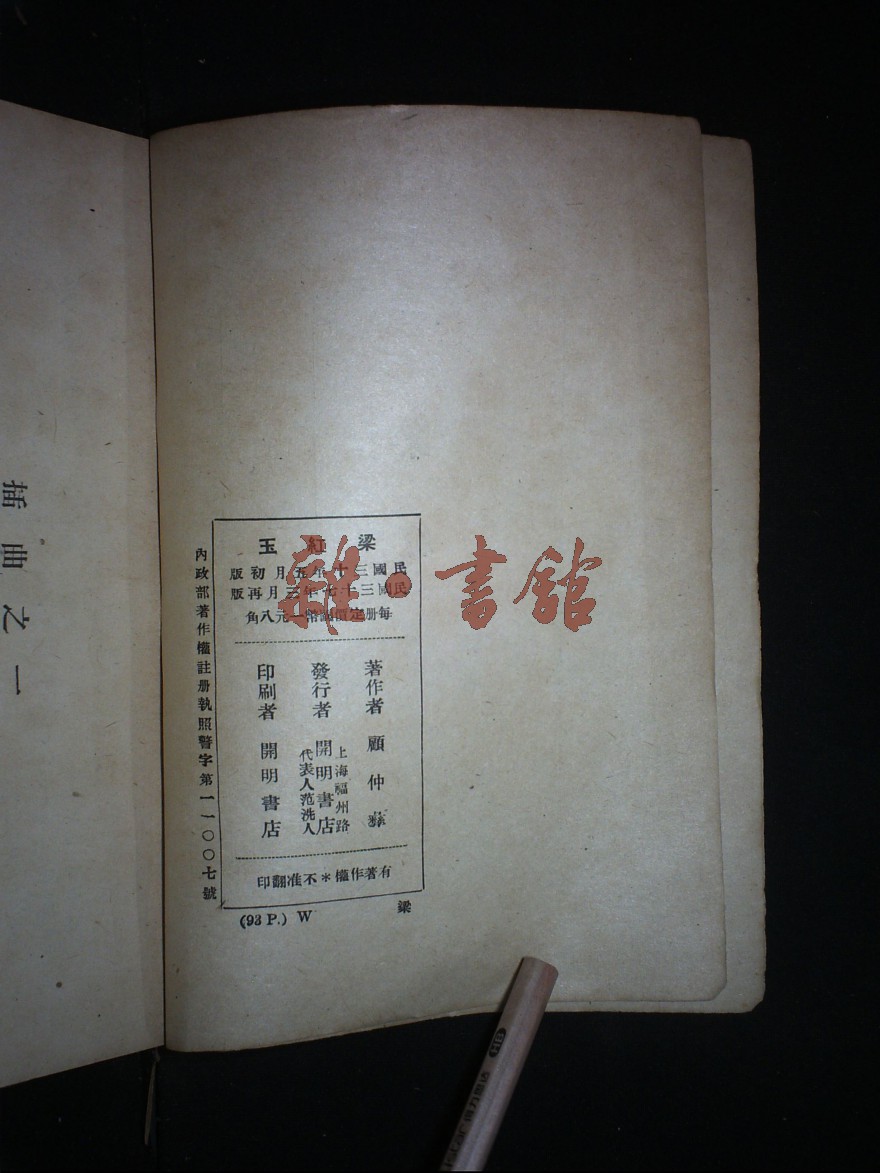 梁紅玉
民國三十年五月初版
民國三十七年三月再版
每册定價國幣一元八角
著作者 顧仲彝
發行者 上海福州路
開明書店
代表人范洗人
印刷者 開明書店
有著作權＊不准翻印
內政部著作權註册執照警字第一一〇〇七號
(93 P.) W 梁
插曲之一
雜·書館
HB